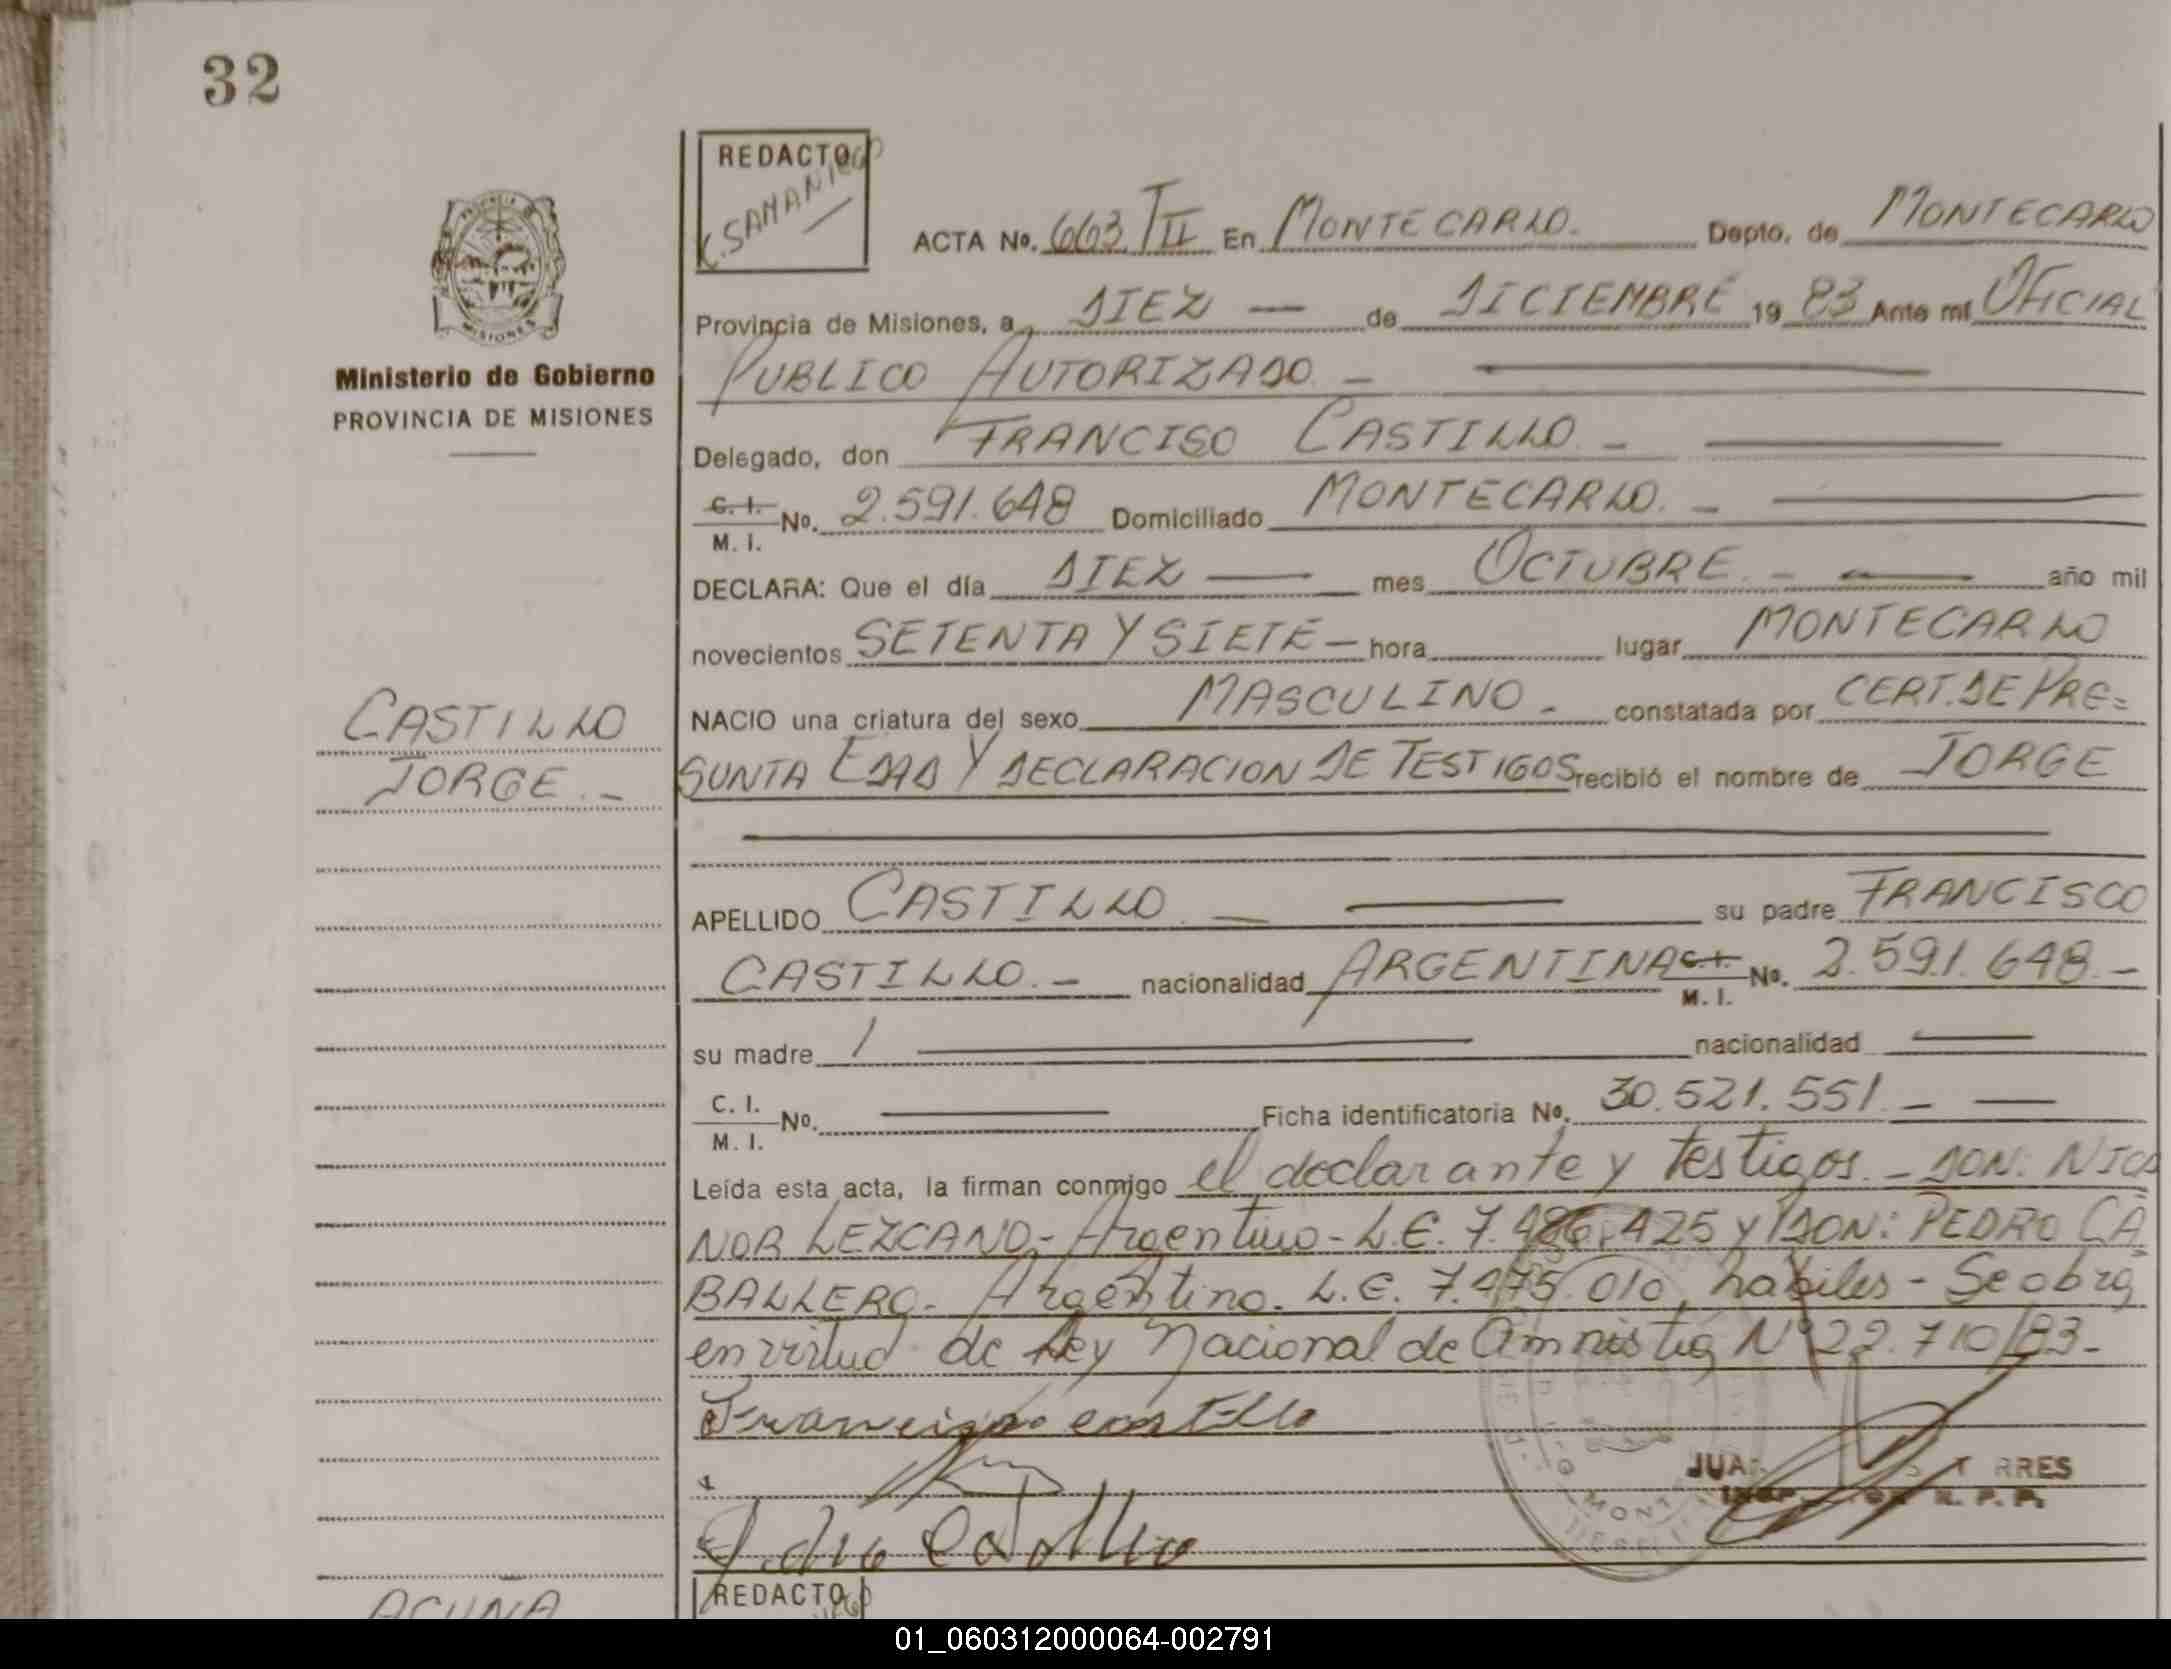 32
REDACTO
C. SAMANIEGO
ACTA No. 663 TII En MONTECARLO. Depto. de MONTECARLO
Provincia de Misiones, a DIEZ — de DICIEMBRE 1983 Ante mi OFICIAL
PUBLICO AUTORIZADO. —
Delegado, don FRANCISO CASTILLO. —
C. I. M. I. No. 2.591.648 Domiciliado MONTECARLO. —
DECLARA: Que el día DIEZ — mes OCTUBRE. — año mil
novecientos SETENTA Y SIETE — hora lugar MONTECARLO
NACIO una criatura del sexo MASCULINO. constatada por CERT. DE PRE=
SUNTA EDAD Y DECLARACION DE TESTIGOS recibió el nombre de JORGE
APELLIDO CASTILLO. — su padre FRANCISCO
CASTILLO. — nacionalidad ARGENTINA C. I. M. I. No. 2.591.648. —
su madre / — nacionalidad —
C. I. M. I. No. — Ficha identificatoria No. 30.521.551. —
Leída esta acta, la firman conmigo el declarante y testigos. — DON: NICA
NOR LEZCANO.- Argentino - L.E. 7.486.425 y DON: PEDRO CA
BALLERO. Argentino. L.E. 7.475.010, habiles - Se obra
en virtud de Ley Nacional de Amnistia Nº 22.710/83-
Francisco castillo
JUA RRES
REDACTO
PROVINCIA DE
MISIONES
Ministerio de Gobierno
PROVINCIA DE MISIONES
CASTILLO
JORGE. —
ACUÑA
01_060312000064-002791